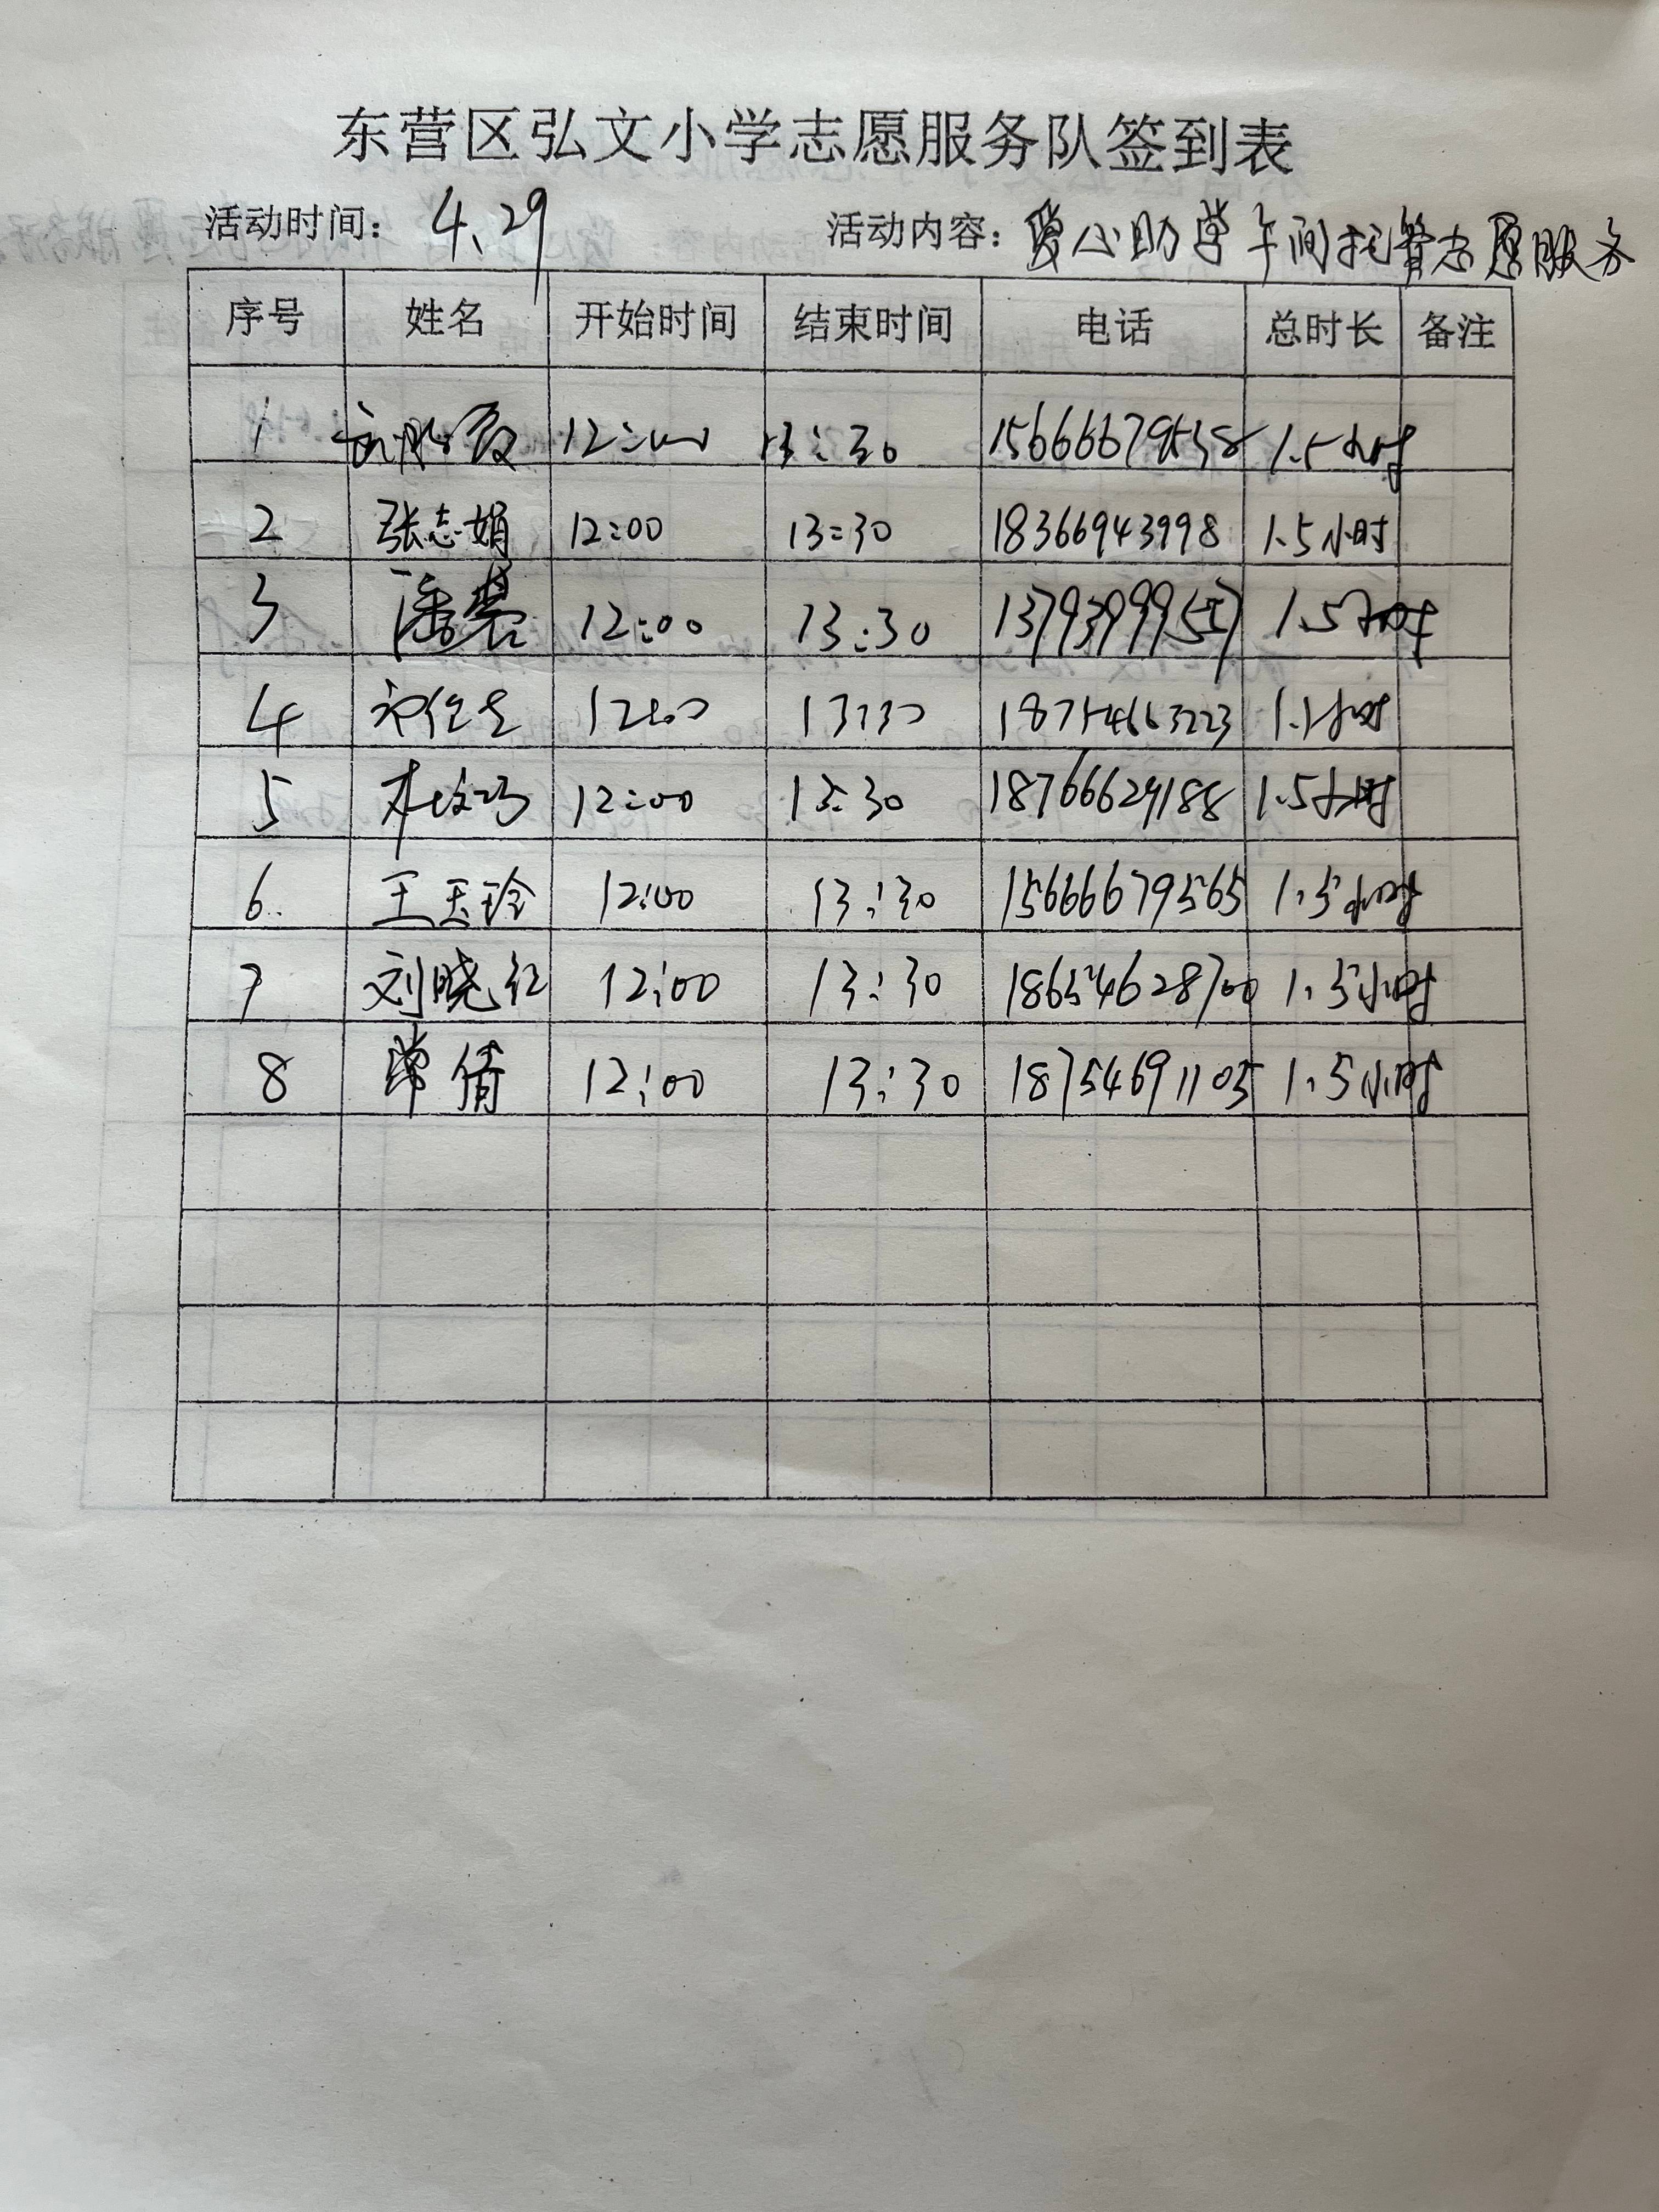 东营区弘文小学志愿服务队签到表
活动时间： 4.29 活动内容： 爱心助学午间托管志愿服务
序号 姓名 开始时间 结束时间 电话 总时长 备注
1 12:00 13:30 15666679538 1.5小时
2 张志娟 12:00 13:30 18366943998 1.5小时
3 12:00 13:30 1.5小时
4 12:00 13:30 18754663223 1.5小时
5 12:00 13:30 1.5小时
6. 王玉玲 12:00 13:30 15666679565 1.5小时
7 刘晓红 12:00 13:30 18654628700 1.5小时
8 常倩 12:00 13:30 18754691105 1.5小时